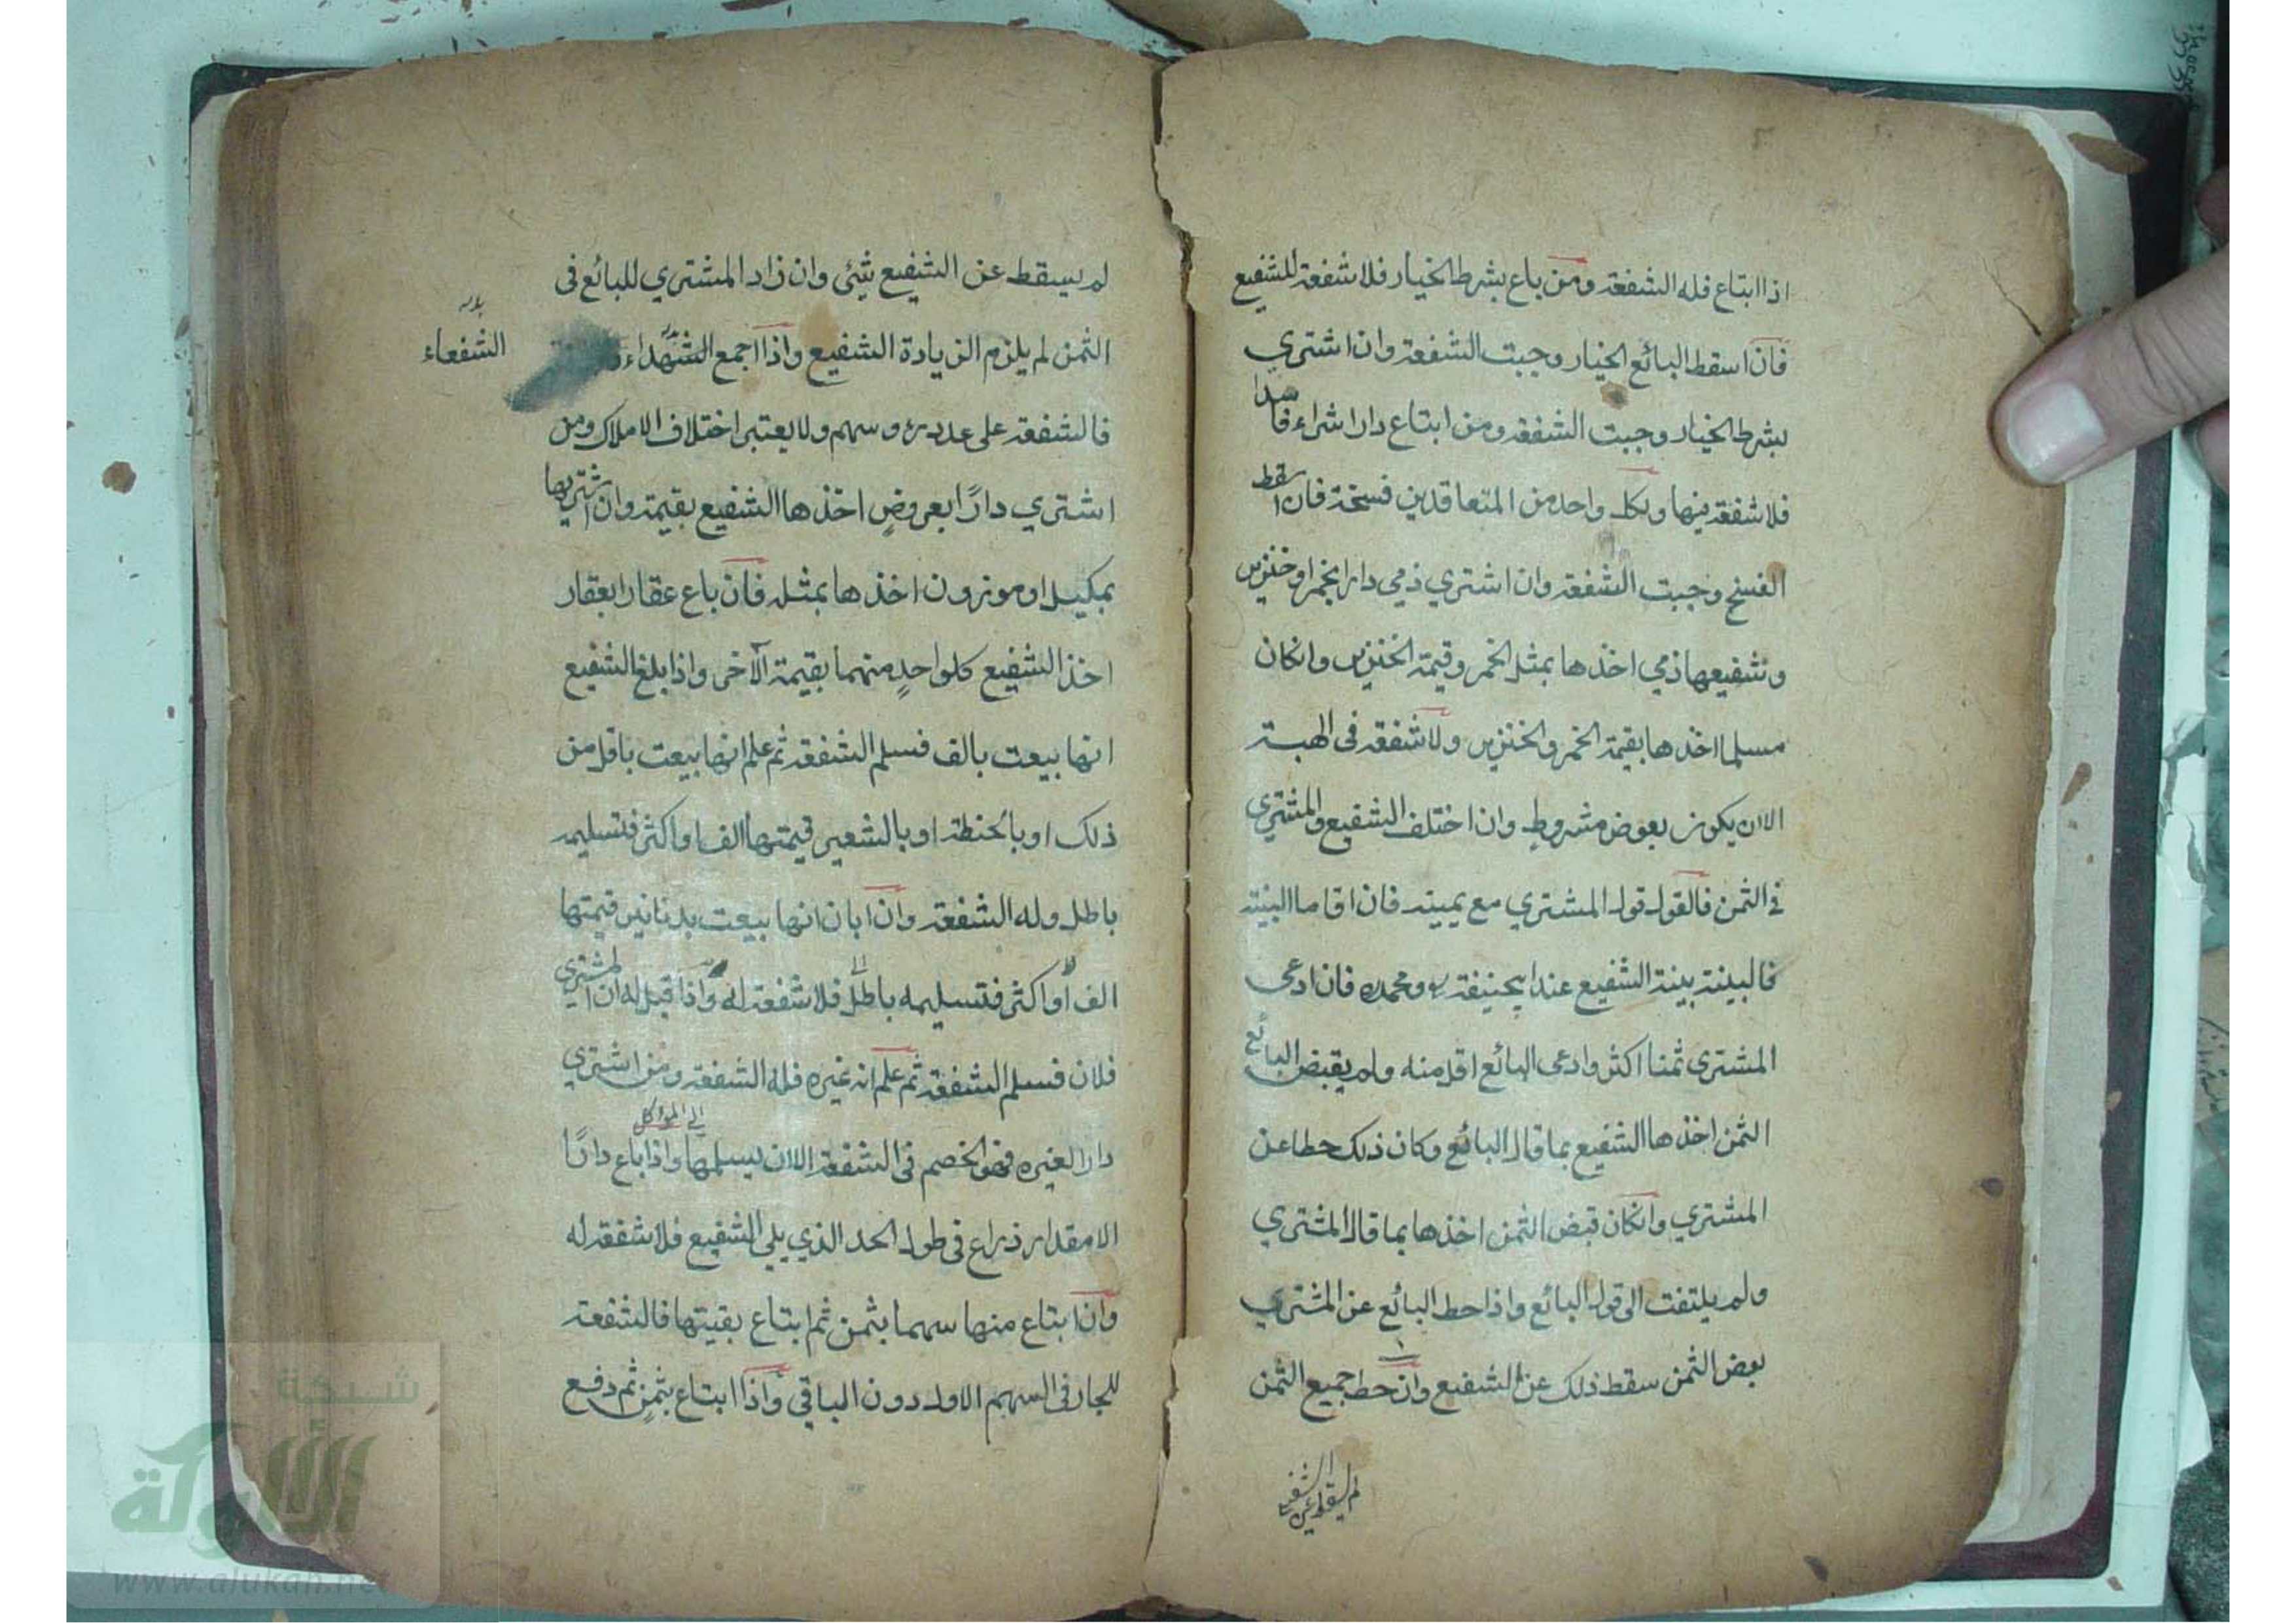 اذا ابتاع فله الشفعة ومن باع بشرط الخيار فلا شفعة للشفيع
فان اسقط البائع الخيار وجبت الشفعة وان اشتري
بشرط الخيار وجبت الشفعة ومن ابتاع دارا شراء فاسدا
فلا شفعة فيها ولكل واحد من المتعاقدين فسخة فان اسقط
الفسخ وجبت الشفعة وان اشتري ذمي دارا بخمر او خنزير
وشفيعها ذمي اخذها بمثل الخمر وقيمة الخنزير وانكان
مسلما اخذها بقيمة الخمر والخنزير ولا شفعة فى الهبة
الا ان يكون بعوض مشروطٍ وان اختلف الشفيع والمشتري
في الثمن فالقول قول المشتري مع يمينه فان اقاما البينة
فالبينة بينة الشفيع عند ابيحنيفة ومحمد فان ادعى
المشتري ثمنا اكثر وادعى البائع اقل منه ولم يقبض البائع
الثمن اخذها الشفيع بما قال البائع وكان ذلك حطا عن
المشتري وانكان قبض الثمن اخذها بما قال المشتري
ولم يلتفت الى قول البائع واذا حط البائع عن المشتري
بعض الثمن سقط ذلك عن الشفيع وان حط جميع الثمن
لم يسقط عن الشفيع
لم يسقط عن الشفيع شئى وان زاد المشتري للبائع فى
الثمن لم يلزم الزيادة الشفيع واذا اجمع الشهداء
الشفعاء
فالشفعة على عدد رءوسهم ولا يعتبر اختلاف الاملاك ومن
اشتري دارًا بعروضٍ اخذها الشفيع بقيمة وان اشتريها
بمكيل او موزون اخذها بمثله فان باع عقارا بعقار
اخذ الشفيع كلواحدٍ منهما بقيمة الآخر واذا بلغ الشفيع
انها بيعت بالف فسلم الشفعة ثم علم انها بيعت باقل من
ذلك او بالحنطة او بالشعير قيمتها الف او اكثر فتسليمه
باطل وله الشفعة وان ابان انها بيعت بدنانير قيمتها
الف او اكثر فتسليمه باطل فلا شفعة له واذا قيل له ان المشتري
فلان فسلم الشفعة ثم علم انه غيره فله الشفعة ومن اشتري
الى المؤكل
دارا لغيره فهو الخصم فى الشفعة الا ان يسلمها واذا باع دارًا
الا مقدار ذراع فى طول الحد الذي يلي الشفيع فلا شفعة له
وان ابتاع منها سهما بثمن ثم ابتاع بقيتها فالشفعة
للجار فى السهم الاول دون الباقي واذا ابتاع بثمنٍ ثم دفع
شبكة
الألوكة
www.alukah.net